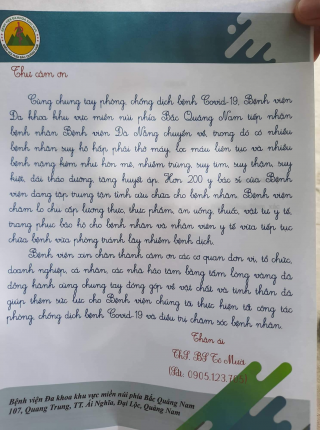 Thư cảm ơn
Cùng chung tay phòng, chống dịch bệnh Covid-19. Bệnh viện
Đa khoa khu vực miền núi phía Bắc Quảng Nam tiếp nhận
bệnh nhân Bệnh viện Đà Nẵng chuyển về, trong đó có nhiều
bệnh nhân suy hô hấp phải thở máy, lọc máu liên tục và nhiều
bệnh nặng kèm như hôn mê, nhiễm trùng, suy tim, suy thận, suy
kiệt, đái tháo đường, tăng huyết áp. Hơn 200 y bác sĩ của Bệnh
viện đang tập trung tận tình cứu chữa cho bệnh nhân. Bệnh viện
chăm lo chu cấp lương thực, thực phẩm, ăn uống, thuốc, vật tư y tế,
trang phục bảo hộ cho bệnh nhân và nhân viên y tế vừa tiếp tục
chữa bệnh vừa phòng tránh lây nhiễm bệnh dịch.
Bệnh viện xin chân thành cảm ơn các cơ quan đơn vị, tổ chức,
doanh nghiệp, cá nhân, các nhà hảo tâm bằng tấm lòng vàng đã
đồng hành cùng chung tay đóng góp về vật chất và tinh thần đã
giúp thêm sức lực cho Bệnh viện chúng ta thực hiện tốt công tác
phòng, chống dịch bệnh Covid-19 và điều trị chăm sóc bệnh nhân.
Thân ái
Bệnh viện Đa khoa khu vực miền núi phía Bắc Quảng Nam
107, Quang Trung, TT. Ái Nghĩa, Đại Lộc, Quảng Nam